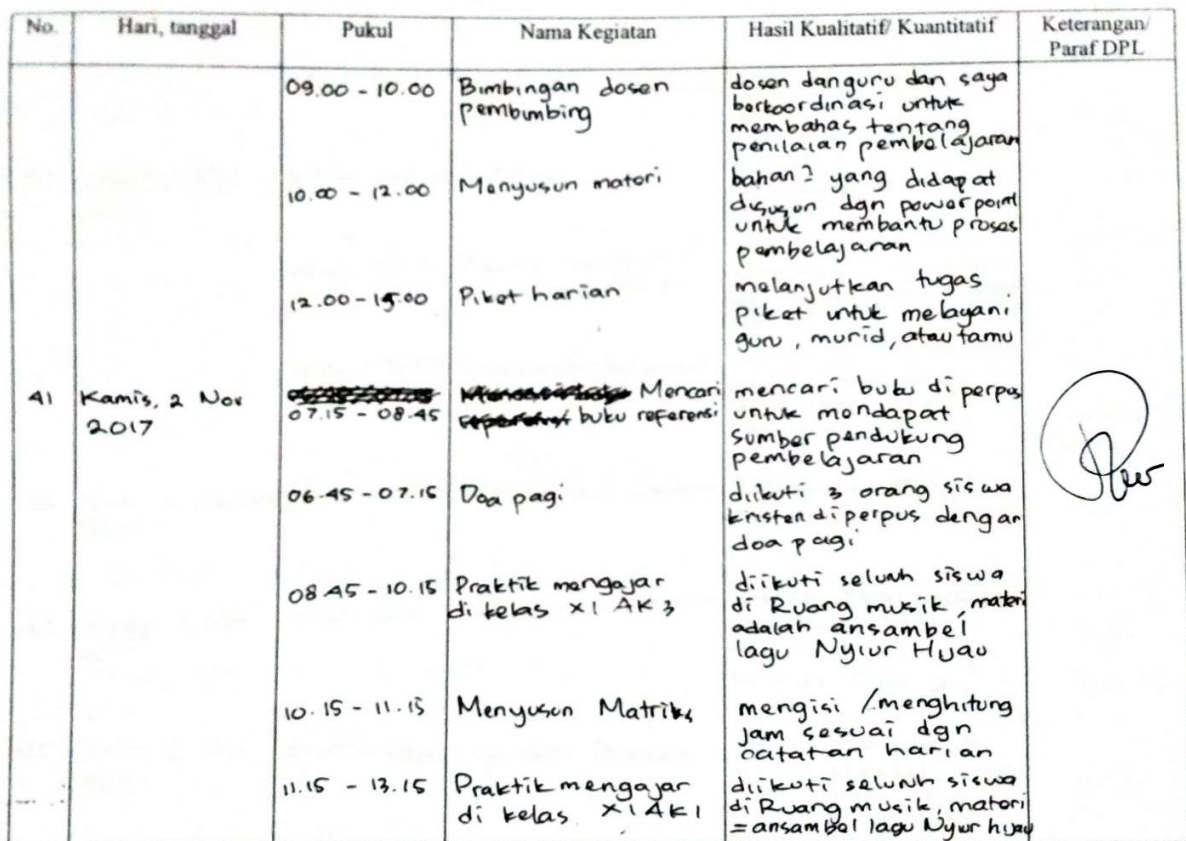 No. Hari, tanggal Pukul Nama Kegiatan Hasil Kualitatif/ Kuantitatif Keterangan/
Paraf DPL
09.00 - 10.00 Bimbingan dosen dosen dan guru dan saya
pembimbing berkoordinasi untuk
membahas tentang
penilaian pembelajaran
10.00 - 12.00 Menyusun materi bahan2 yang didapat
disusun dgn powerpoint
untuk membantu proses
pembelajaran
12.00 - 15.00 Piket harian melanjutkan tugas
piket untuk melayani
guru, murid, atau tamu
41 Kamis, 2 Nov Mencari mencari buku di perpus
2017 07.15 - 08.45 buku referensi untuk mendapat
sumber pendukung
pembelajaran
06.45 - 07.15 Doa pagi diikuti 3 orang siswa
kristen di perpus dengan
doa pagi
08.45 - 10.15 Praktik mengajar diikuti seluruh siswa
di kelas XI AK 3 di Ruang musik, materi
adalah ansambel
lagu Nyiur Hijau
10.15 - 11.15 Menyusun Matriks mengisi / menghitung
jam sesuai dgn
catatan harian
11.15 - 13.15 Praktik mengajar diikuti seluruh siswa
di kelas XI AK 1 di Ruang musik, materi
= ansambel lagu Nyiur hijau